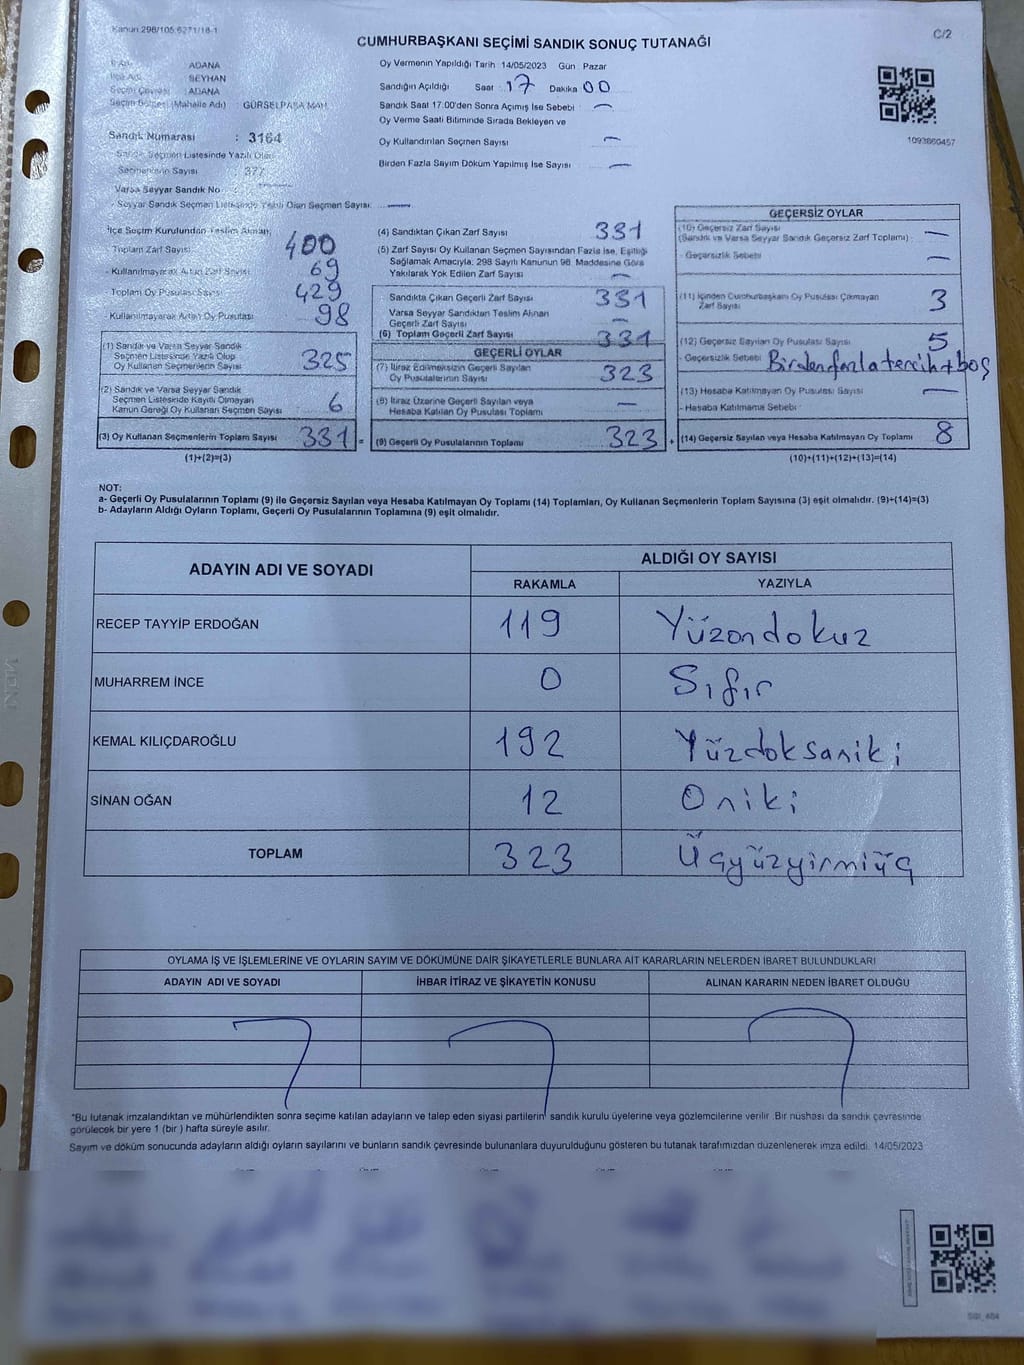 Kanun 298/105 6271/18-1
C/2
CUMHURBAŞKANI SEÇİMİ SANDIK SONUÇ TUTANAĞI
ADANA
SEYHAN
Seçim Çevresi : ADANA
Seçim Bölgesi (Mahalle Adı) GÜRSELPAŞA MAH.
Sandık Numarası : 3164
Sandık Seçmen Listesinde Yazılı Olan
Seçmenlerin Sayısı : 377
Varsa Seyyar Sandık No :
- Seyyar Sandık Seçmen Listesinde Yazılı Olan Seçmen Sayısı:
Oy Vermenin Yapıldığı Tarih 14/05/2023 Gün Pazar
Sandığın Açıldığı Saat : 17 Dakika 00
Sandık Saat 17.00'den Sonra Açımış İse Sebebi :
Oy Verme Saati Bitiminde Sırada Bekleyen ve
Oy Kullandırılan Seçmen Sayısı
Birden Fazla Sayım Döküm Yapılmış İse Sayısı
1093860457
İlçe Seçim Kurulundan Teslim Alınan,
Toplam Zarf Sayısı 400
- Kullanılmayarak Artan Zarf Sayısı 69
- Toplam Oy Pusulası Sayısı 429
- Kullanılmayarak Artan Oy Pusulası 98
(1) Sandık ve Varsa Seyyar Sandık
Seçmen Listesinde Yazılı Olup
Oy Kullanan Seçmenlerin Sayısı 325
(2) Sandık ve Varsa Seyyar Sandık
Seçmen Listesinde Kayıtlı Olmayan
Kanun Gereği Oy Kullanan Seçmen Sayısı 6
(3) Oy Kullanan Seçmenlerin Toplam Sayısı 331 =
(1)+(2)=(3)
(4) Sandıktan Çıkan Zarf Sayısı 331
(5) Zarf Sayısı Oy Kullanan Seçmen Sayısından Fazla İse, Eşitliği
Sağlamak Amacıyla; 298 Sayılı Kanunun 98. Maddesine Göre
Yakılarak Yok Edilen Zarf Sayısı
- Sandıkta Çıkan Geçerli Zarf Sayısı 331
Varsa Seyyar Sandıktan Teslim Alınan
Geçerli Zarf Sayısı
(6) Toplam Geçerli Zarf Sayısı 331
GEÇERLİ OYLAR
(7) İtiraz Edilmeksizin Geçerli Sayılan
Oy Pusulalarının Sayısı 323
(8) İtiraz Üzerine Geçerli Sayılan veya
Hesaba Katılan Oy Pusulası Toplamı
(9) Geçerli Oy Pusulalarının Toplamı 323 +
GEÇERSİZ OYLAR
(10) Geçersiz Zarf Sayısı
(Sandık ve Varsa Seyyar Sandık Geçersiz Zarf Toplamı)
- Geçersizlik Sebebi
(11) İçinden Cumhurbaşkanı Oy Pusulası Çıkmayan
Zarf Sayısı 3
(12) Geçersiz Sayılan Oy Pusulası Sayısı 5
- Geçersizlik Sebebi Birden fazla tercih + boş
(13) Hesaba Katılmayan Oy Pusulası Sayısı
- Hesaba Katılmama Sebebi
(14) Geçersiz Sayılan veya Hesaba Katılmayan Oy Toplamı 8
(10)+(11)+(12)+(13)=(14)
NOT:
a- Geçerli Oy Pusulalarının Toplamı (9) ile Geçersiz Sayılan veya Hesaba Katılmayan Oy Toplamı (14) Toplamları, Oy Kullanan Seçmenlerin Toplam Sayısına (3) eşit olmalıdır. (9)+(14)=(3)
b- Adayların Aldığı Oyların Toplamı, Geçerli Oy Pusulalarının Toplamına (9) eşit olmalıdır.
ADAYIN ADI VE SOYADI ALDIĞI OY SAYISI
RAKAMLA YAZIYLA
RECEP TAYYİP ERDOĞAN 119 Yüzondokuz
MUHARREM İNCE 0 Sıfır
KEMAL KILIÇDAROĞLU 192 Yüzdoksaniki
SİNAN OĞAN 12 Oniki
TOPLAM 323 Üçyüzyirmiüç
OYLAMA İŞ VE İŞLEMLERİNE VE OYLARIN SAYIM VE DÖKÜMÜNE DAİR ŞİKAYETLERLE BUNLARA AİT KARARLARIN NELERDEN İBARET BULUNDUKLARI
ADAYIN ADI VE SOYADI İHBAR İTİRAZ VE ŞİKAYETİN KONUSU ALINAN KARARIN NEDEN İBARET OLDUĞU
*Bu tutanak imzalandıktan ve mühürlendikten sonra seçime katılan adayların ve talep eden siyasi partilerin sandık kurulu üyelerine veya gözlemcilerine verilir. Bir nüshası da sandık çevresinde
görülecek bir yere 1 (bir ) hafta süreyle asılır.
Sayım ve döküm sonucunda adayların aldığı oyların sayılarını ve bunların sandık çevresinde bulunanlara duyurulduğunu gösteren bu tutanak tarafımızdan düzenlenerek imza edildi. 14/05/2023